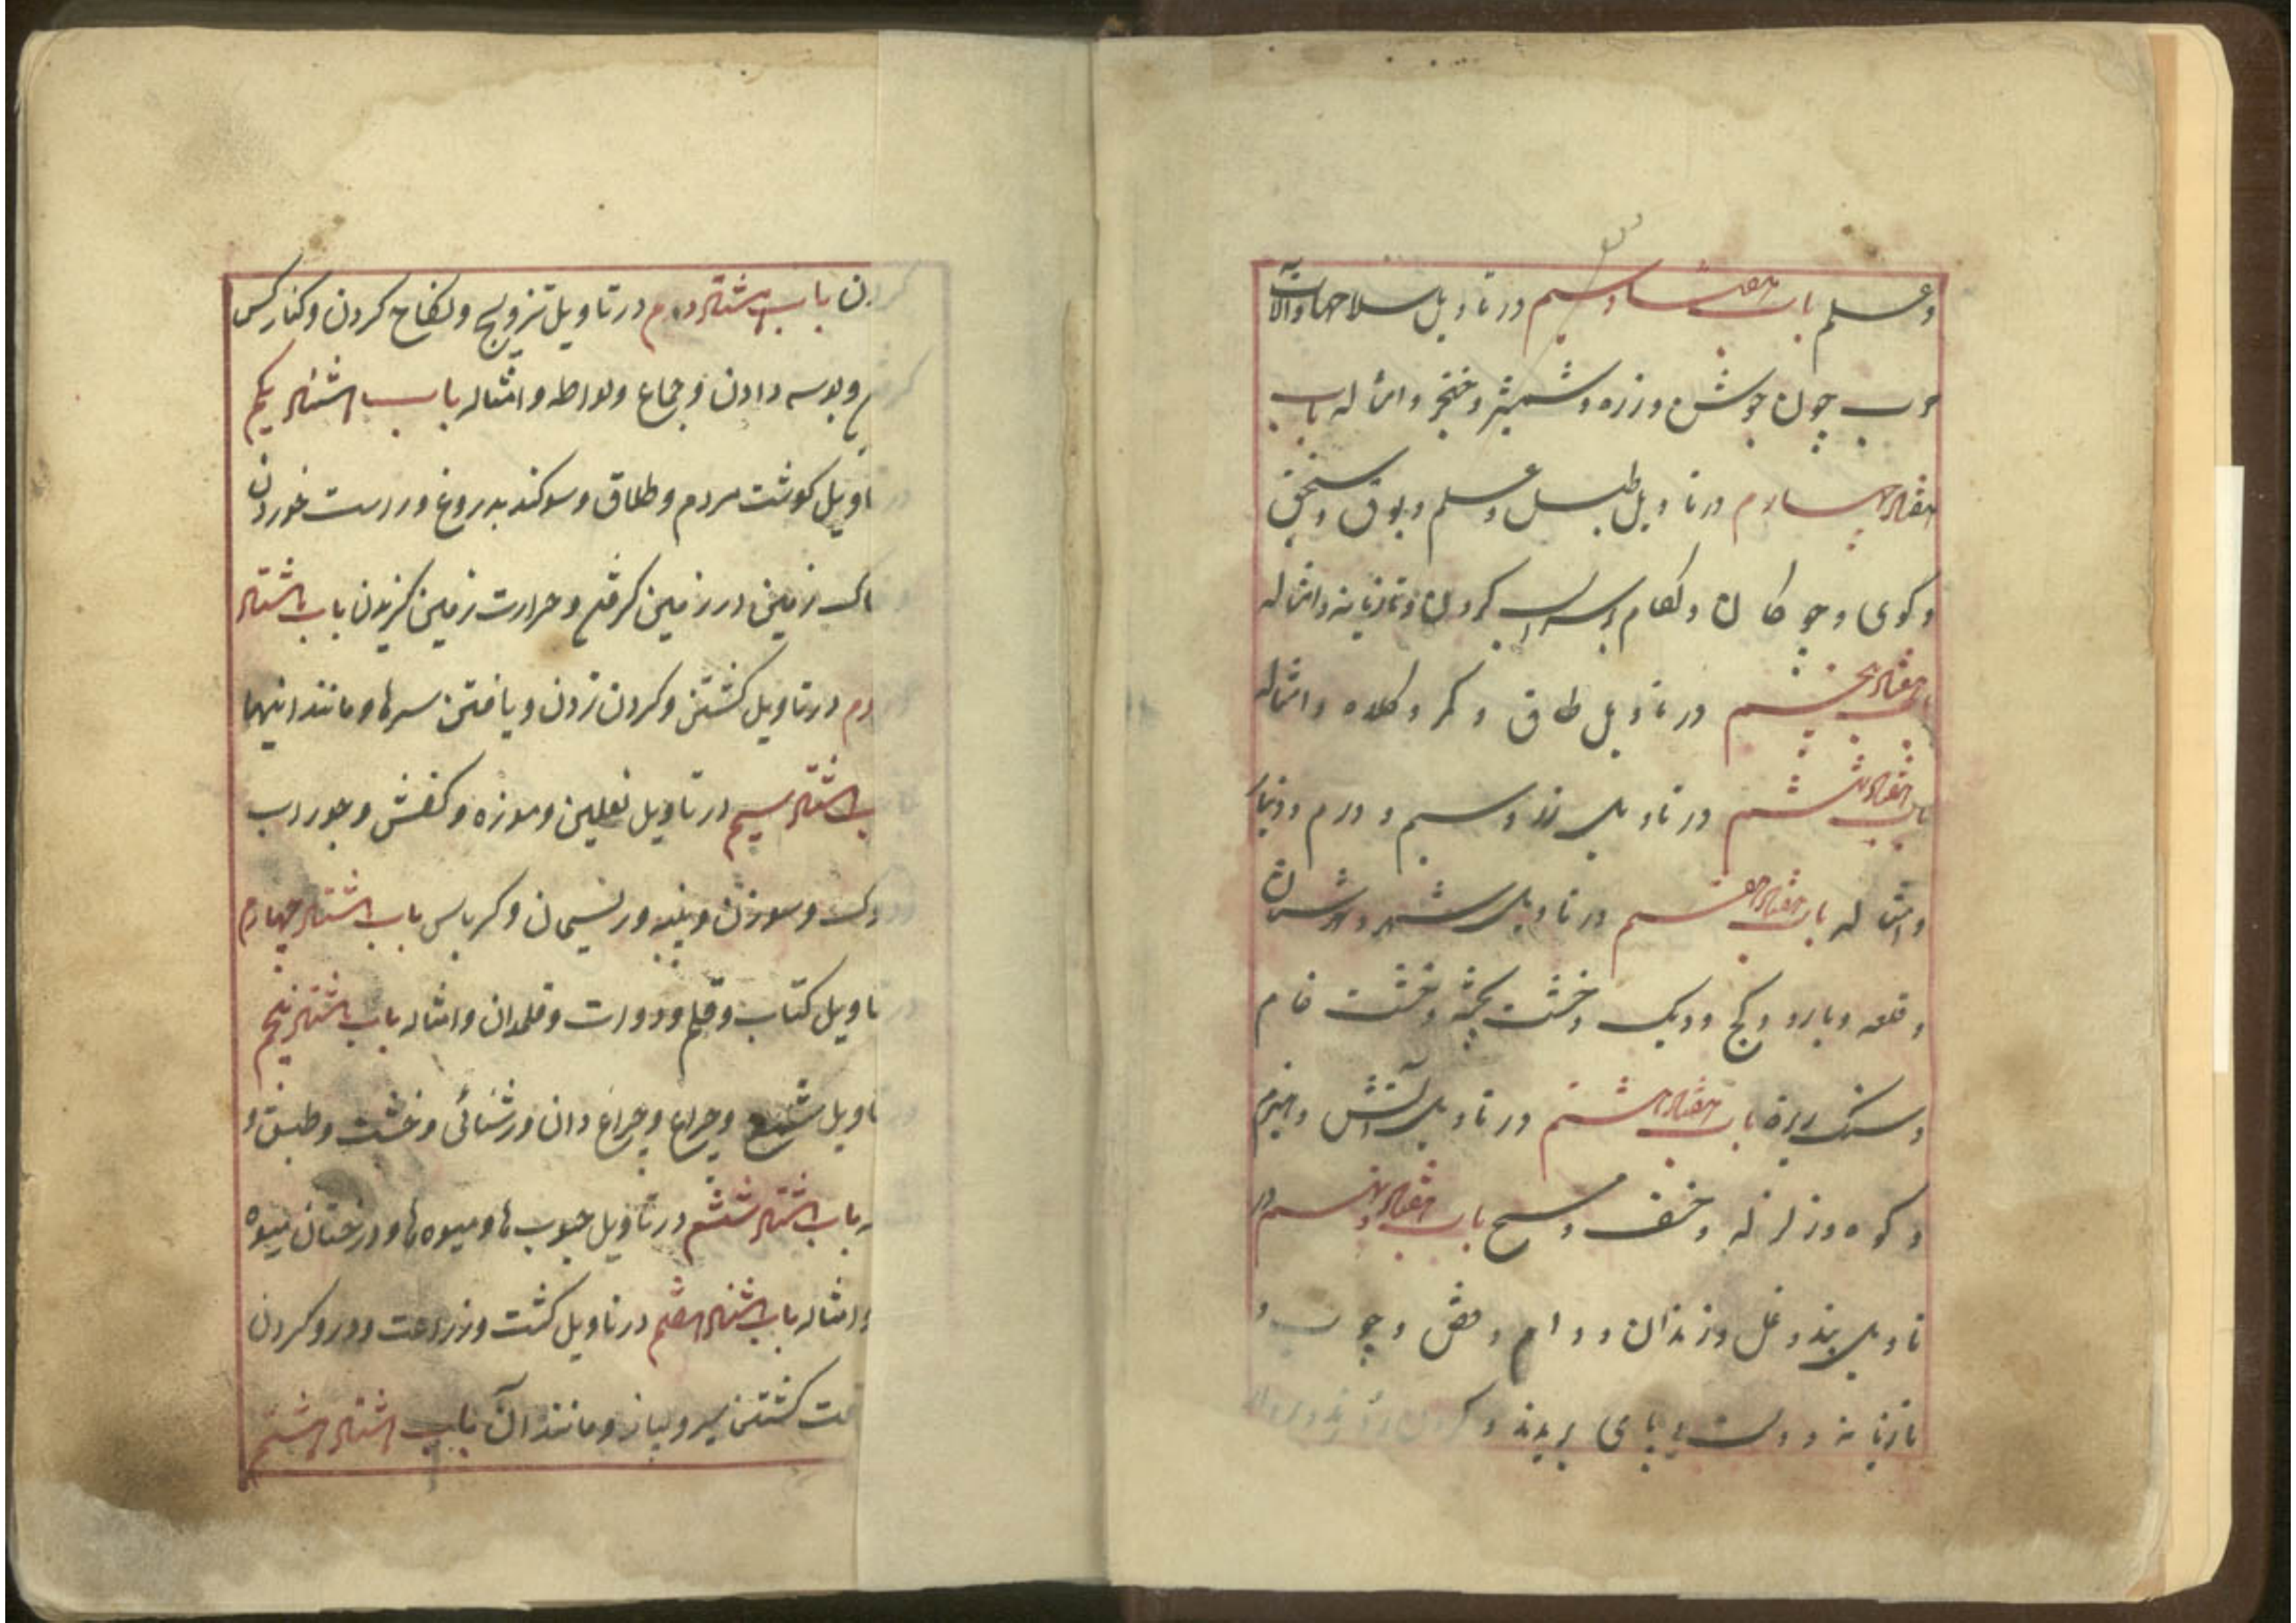 وعلم باب هفتاد و سیم در تاویل سلاحها و آلات
حرب چون جوشن و زره و شمشیر و خنجر و امثاله باب
هفتاد چهارم در تاویل طبل و علم و بوق و سنجق
و کوی و چوکان و لکام و اسراب کردن و تازیانه و امثاله
باب هفتاد پنجم در تاویل طاق و کمر و کلاه و امثاله
باب هفتاد ششم در تاویل زر و سیم و درم و دینار
و امثاله باب هفتاد هفتم در تاویل شهر و
و قلعه و بارو و کج و دیک و خشت پخته و خشت خام
و سنک ریزه باب هفتاد هشتم در تاویل آتش و هیزم
و کوه و زلزله و خسف و مسخ باب هفتاد و نهم در
تاویل بند و غل و زندان و دام و قفص و چوب و
تازیانه و دست یا پای بریدن و کردن زدن
کردن باب هشتاد م در تاویل تزویج و نکاح کردن و کنار کس
و بوسه دادن و جماع و لواطه و امثاله باب هشتاد یکم
تاویل کوشت مردم و طلاق و سوکند بدروغ و راست خوردن
زمین در زمین کرفتن و حرارت زمین کزیدن باب هشتاد
دوم در تاویل کشتن و کردن زدن و یافتن سرها و مانند اینها
باب هشتاد سیم در تاویل نعلین و موزه و کفش و جوراب
دوک و سوزن و پنبه و ریسمان و کرباس باب هشتاد چهارم
در تاویل کتاب و قلم و دوات و قلمدان و امثاله باب هشتاد پنجم
در تاویل شمع و چراغ و چراغ دان و روشنائی و خشت و طبق و
باب هشتاد ششم در تاویل حبوب ها و میوه ها و درختان میوه
و امثاله باب هشتاد هفتم در تاویل کشت و زراعت و درو کردن
کشتن سیر و پیاز و مانند آن باب هشتاد هشتم